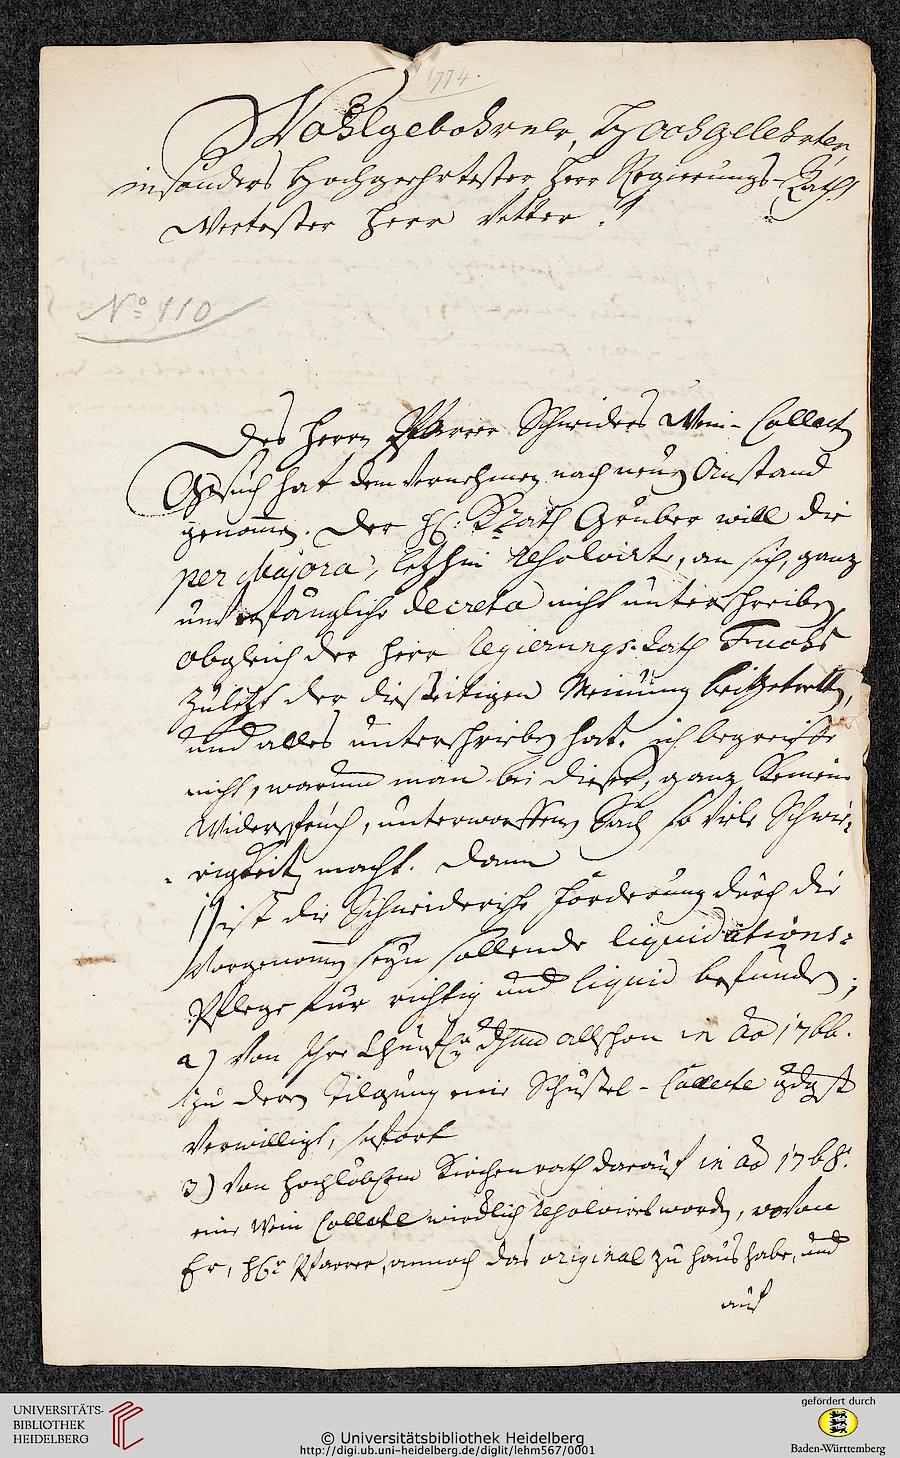 1774.
Wohlgebohrner, Hochgelehrter
insonders Hochgeehrtester Herr Regierungs-Rath!
Wertester Herr Vetter!
No 110
Des Herrn Pfarrer Schneiders Wein-Collect
Gesuch hat dem Vernehmen nach neuen Anstand
genommen. Der H: Rath Gruber will die
per Majora, letzhin resolvirte, an sich, ganz
unverfängliche decreta nicht unterschreiben,
obgleich der Herr Regierungs-Rath Fuchs
zuletzt der diesseitigen Meinung beigetretten,
und alles unterschrieben hat. ich begreiffe
nicht, warum man bei dieser, ganz keinem
Widerspruch, unterworffenen Sach so viele Schwie-
rigkeit macht. Dann
1) ist die Schneiderische Forderung durch die
Vorgenommen seyn sollende liquidations-
Pflege für richtig und liquid befunden;
2) Von Ihro Churfn Dhlt allschon in Ao 1766.
zu deren Tilgung eine Schüssel-Collecte gdgst
Verwilligt, sofort
3) Von Hochlöbchem Kirchenrath darauf in Ao 1768.
eine Wein Collecte würdlich resolvirt worden, wovon
Er, H. Pfarrer, annoch das original zu Haus habe, und
auf
UNIVERSITÄTS-
BIBLIOTHEK
HEIDELBERG
© Universitätsbibliothek Heidelberg
http://digi.ub.uni-heidelberg.de/diglit/lehm567/0001
gefördert durch
Baden-Württemberg